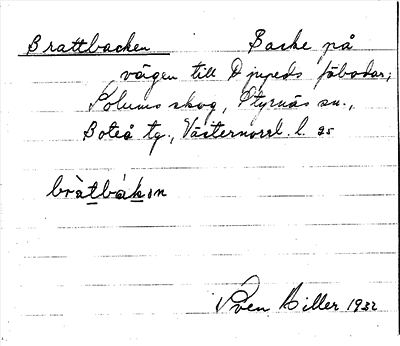 Brattbacken Backe på
vägen till Djupeds fäbodar,
Solums skog, Styrnäs sn.,
Boteå tg., Västernorrl. l.
bràtbákɘn
Sven Hiller 1932